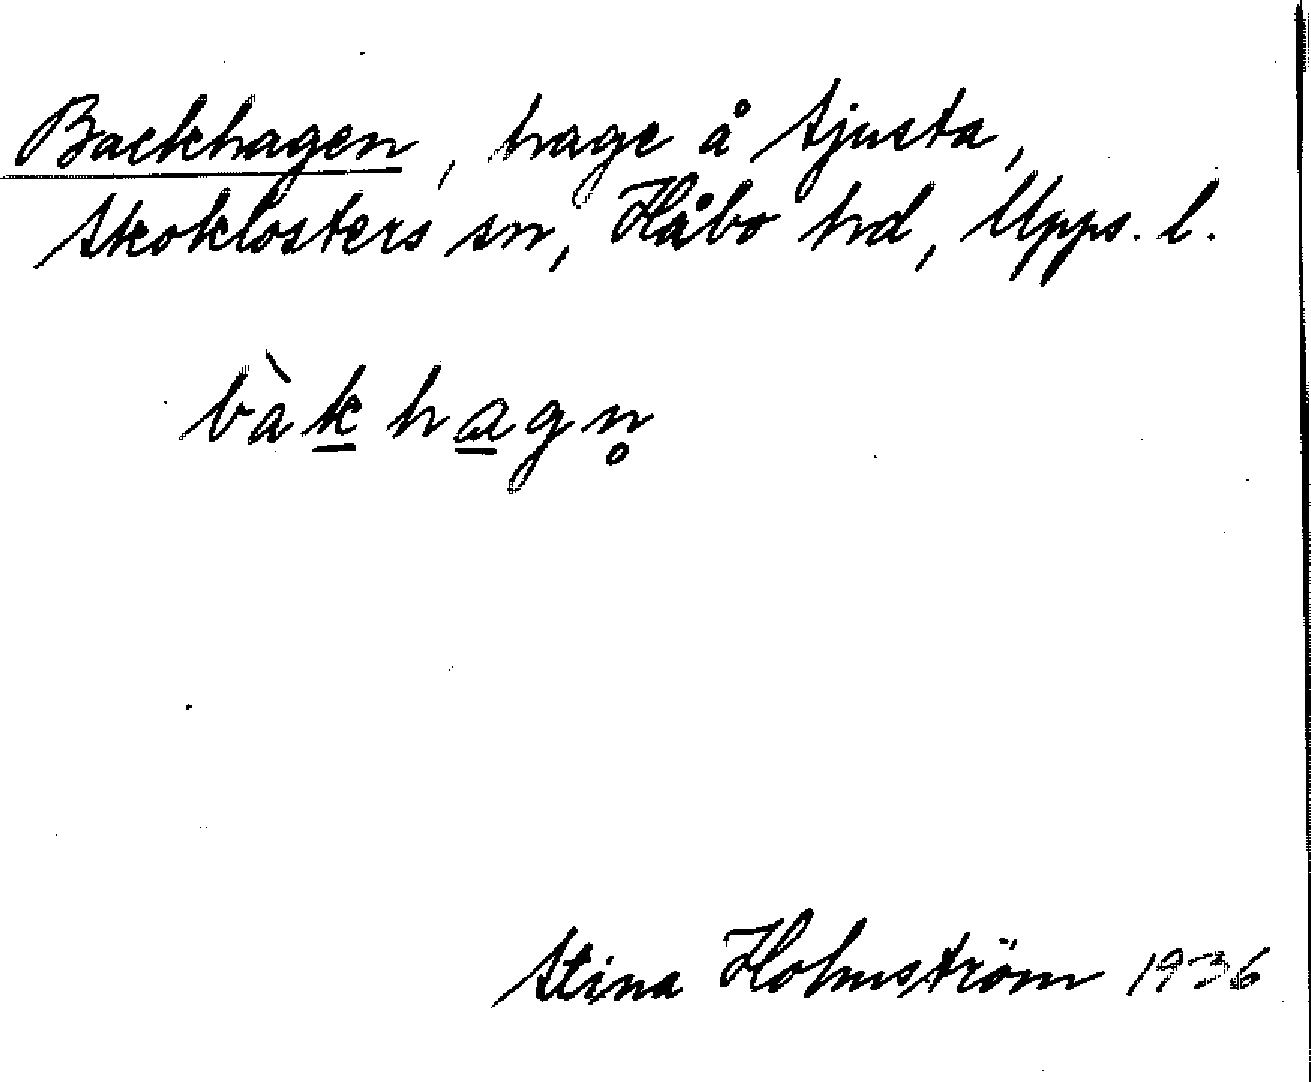 Backhagen, hage å Sjusta,
Skoklosters sn, Håbo hd, Upps. l.
bàk̲ ha̲gn̥
Stina Holmström 1936